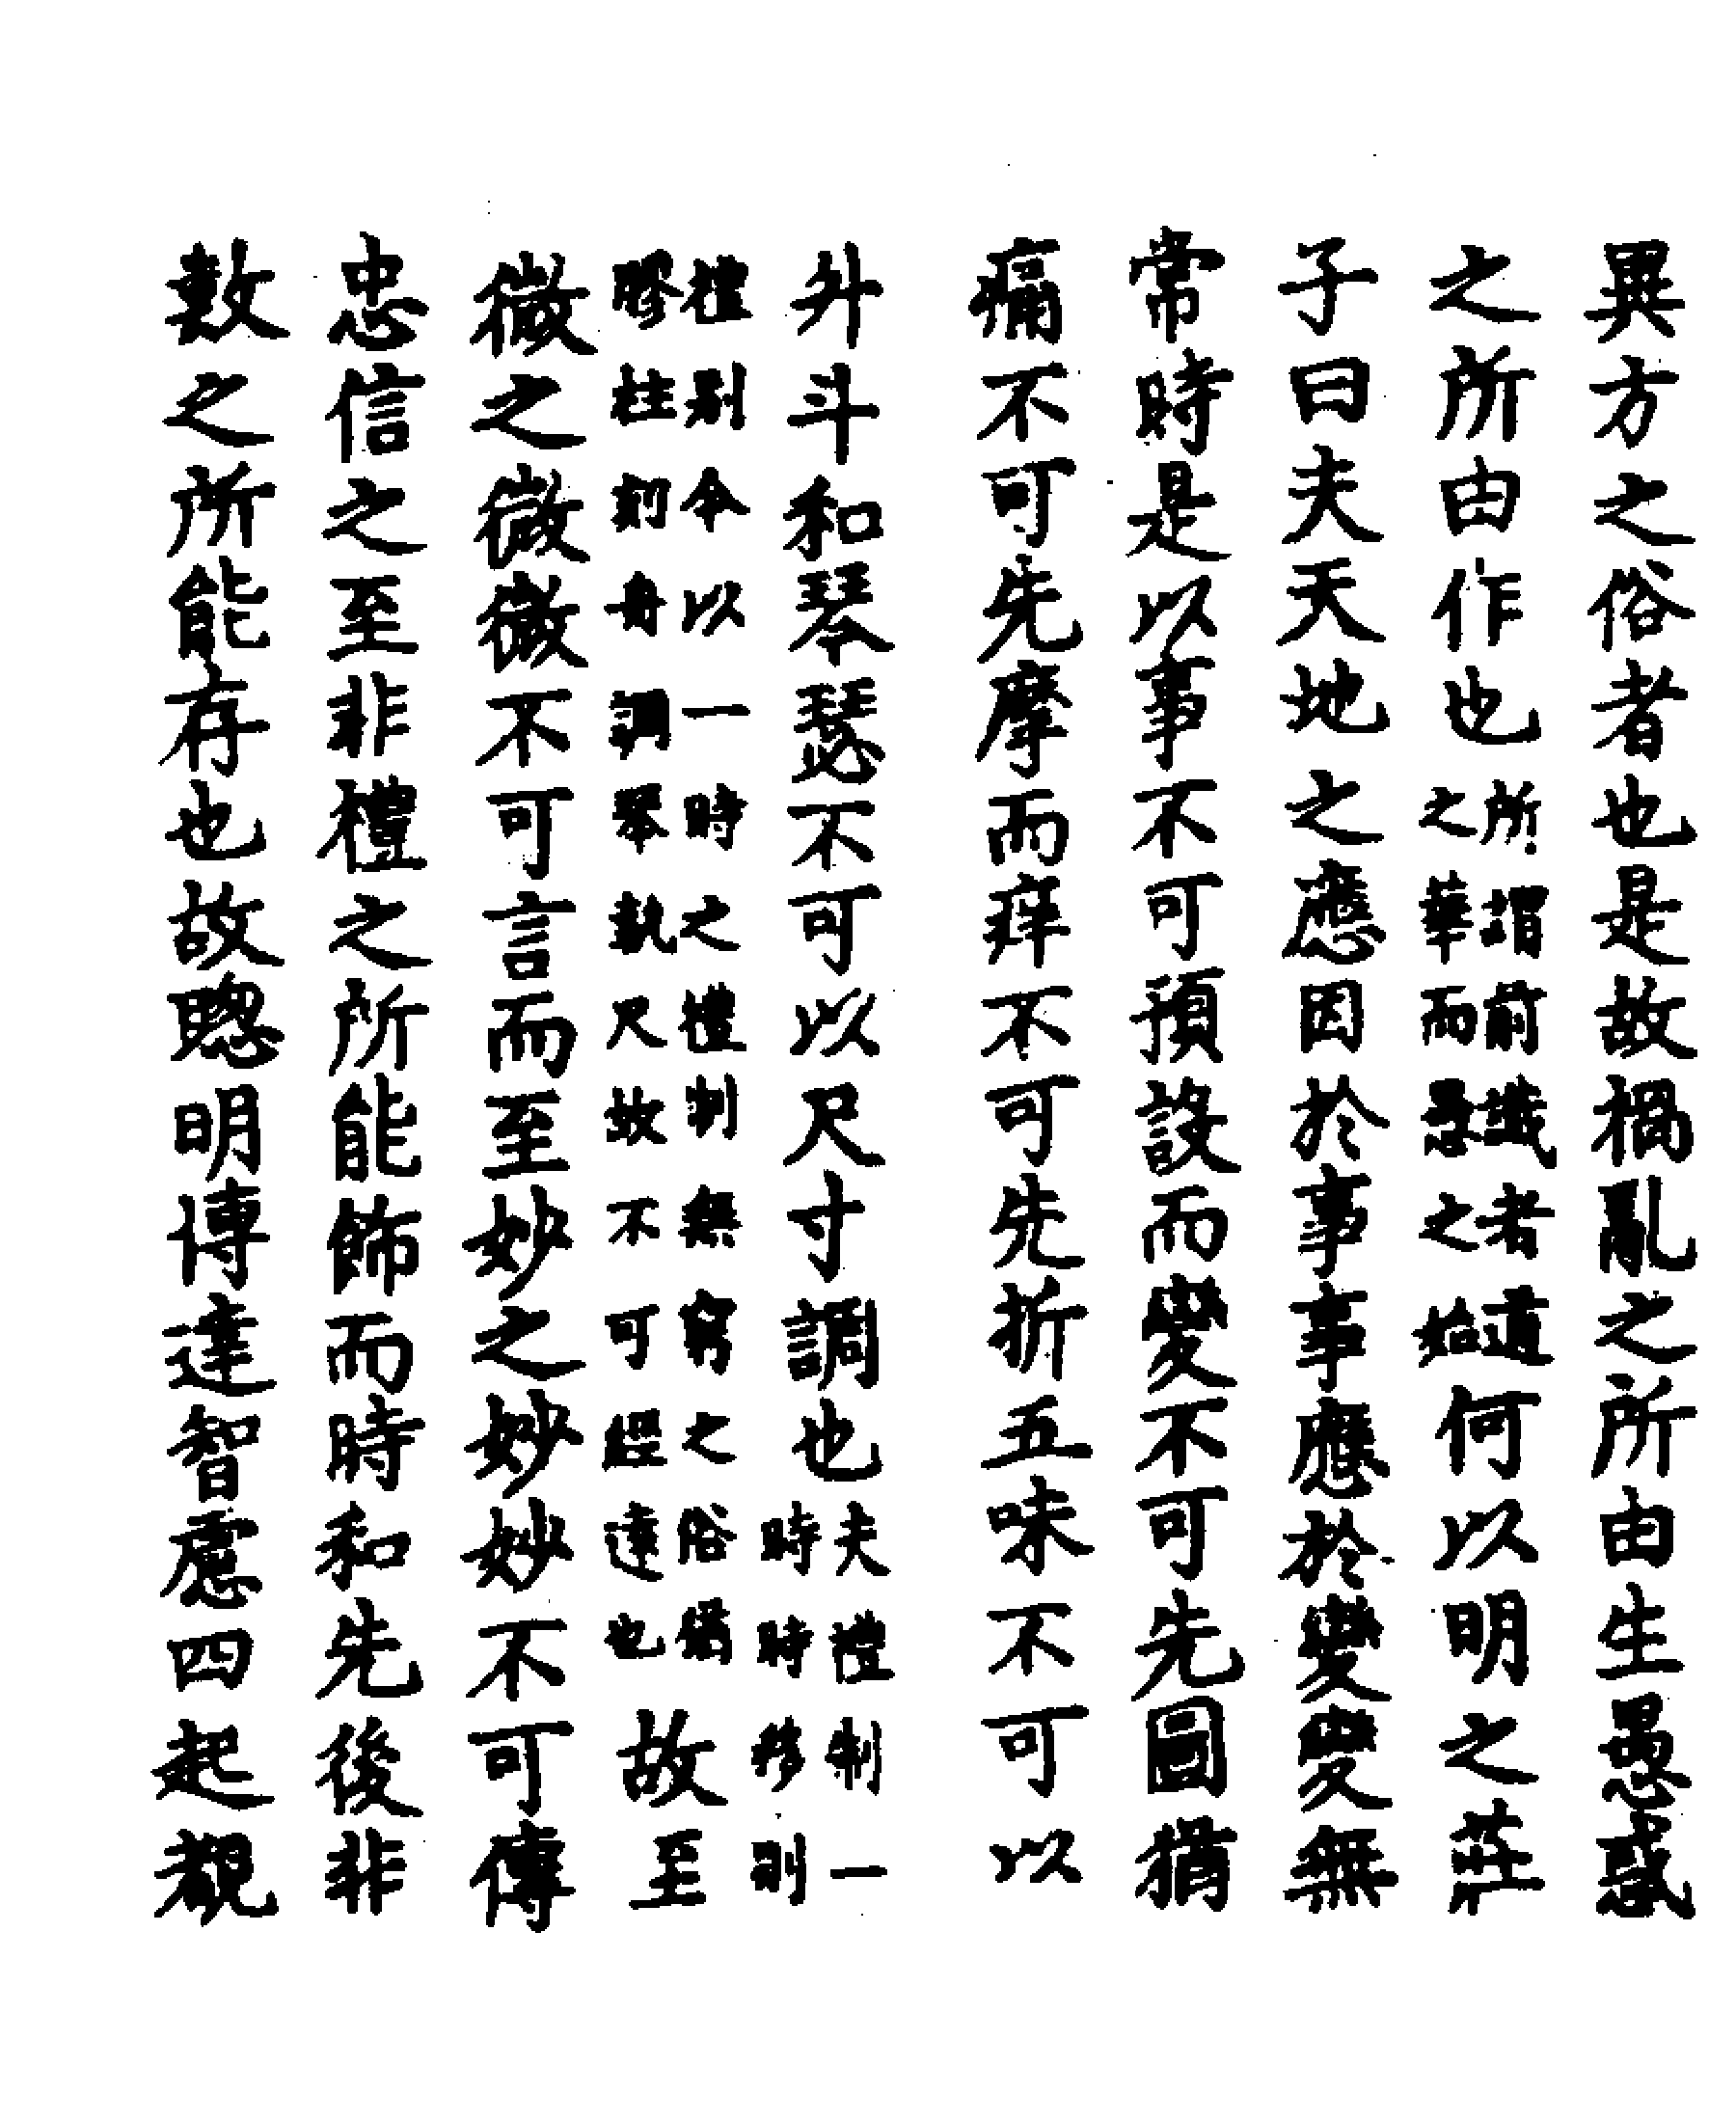 異方之俗者也是故禍亂之所由生愚惑
之所由作也所謂前識者道之華而愚之始何以明之莊
子曰夫天地之應因於事事應於變變無
常時是以事不可預設而變不可先圖猶
痛不可先摩而痒不可先折五味不可以
升斗和琴瑟不可以尺寸調也夫禮制一時時移則
禮別今以一時之禮制無窮之俗猶膠柱刻舟調琴執尺故不可經達也故至
微之微微不可言而至妙之妙妙不可傳
忠信之至非禮之所能飾而時和先後非
數之所能存也故聰明傳達智慮四起覩